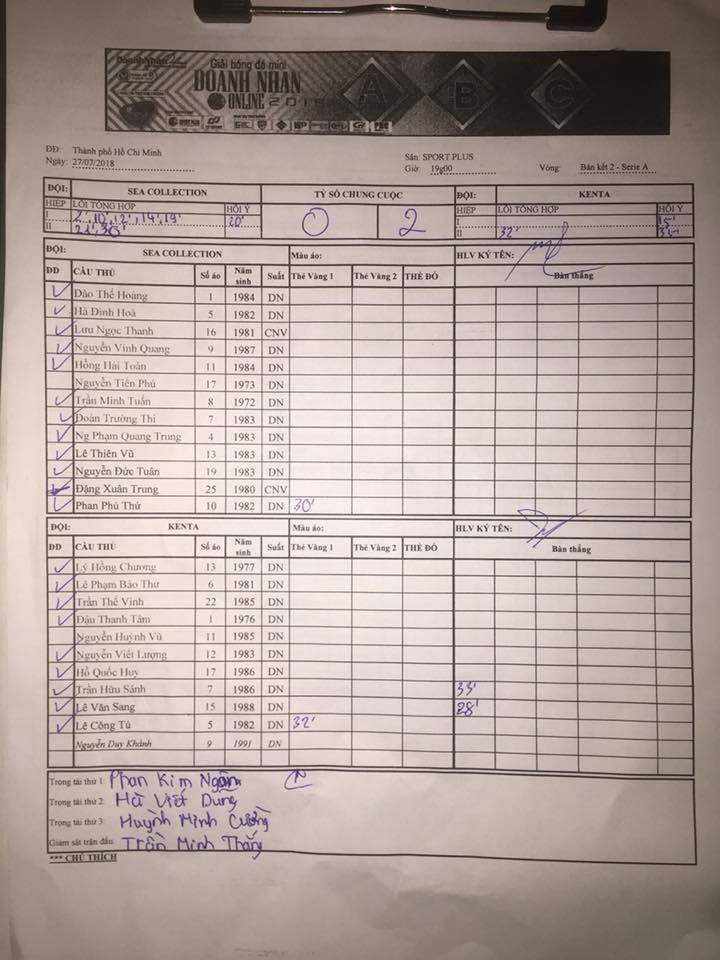 Giải bóng đá mini
DOANH NHÂN
ONLINE 2018
A B C
ĐĐ: Thành phố Hồ Chí Minh Sân: SPORT PLUS
Ngày: 27/07/2018 Giờ: 19g00 Vòng: Bán kết 2 - Serie A
ĐỘI: SEA COLLECTION TỶ SỐ CHUNG CUỘC ĐỘI: KENTA
HIỆP LỖI TỔNG HỢP HỘI Ý 0 2 HIỆP LỖI TỔNG HỢP HỘI Ý
I 2', 10', 12', 14', 19' 20' I 15'
II 21', 30' II 32' 35'
ĐỘI: SEA COLLECTION Màu áo: HLV KÝ TÊN:
DD CẦU THỦ Số áo Năm sinh Suất Thẻ Vàng 1 Thẻ Vàng 2 THẺ ĐỎ Bàn thắng
Đào Thế Hoàng 1 1984 DN
Hà Đình Hoà 5 1982 DN
Lưu Ngọc Thanh 16 1981 CNV
Nguyễn Vinh Quang 9 1987 DN
Hồng Hai Toàn 11 1984 DN
Nguyễn Tiến Phú 17 1973 DN
Trần Minh Tuấn 8 1972 DN
Đoàn Trường Thi 7 1983 DN
Ng Phạm Quang Trung 4 1983 DN
Lê Thiên Vũ 13 1983 DN
Nguyễn Đức Tuân 19 1983 DN
Đặng Xuân Trung 25 1980 CNV
Phan Phú Thứ 10 1982 DN 30'
ĐỘI: KENTA Màu áo: HLV KÝ TÊN:
DD CẦU THỦ Số áo Năm sinh Suất Thẻ Vàng 1 Thẻ Vàng 2 THẺ ĐỎ Bàn thắng
Lý Hồng Chương 13 1977 DN
Lê Phạm Bảo Thư 6 1981 DN
Trần Thế Vinh 22 1985 DN
Đậu Thanh Tâm 1 1976 DN
Nguyễn Huỳnh Vũ 11 1985 DN
Nguyễn Viết Lượng 12 1983 DN
Hồ Quốc Huy 17 1986 DN
Trần Hữu Sánh 7 1986 DN 33'
Lê Văn Sang 15 1988 DN 28'
Lê Công Tú 5 1982 DN 32'
Nguyễn Duy Khánh 9 1991 DN
Trọng tài thứ 1: Phan Kim Ngân
Trọng tài thứ 2: Hà Viết Dũng
Trọng tài thứ 3: Huỳnh Minh Cường
Giám sát trận đấu: Trần Minh Thắng
*** CHÚ THÍCH